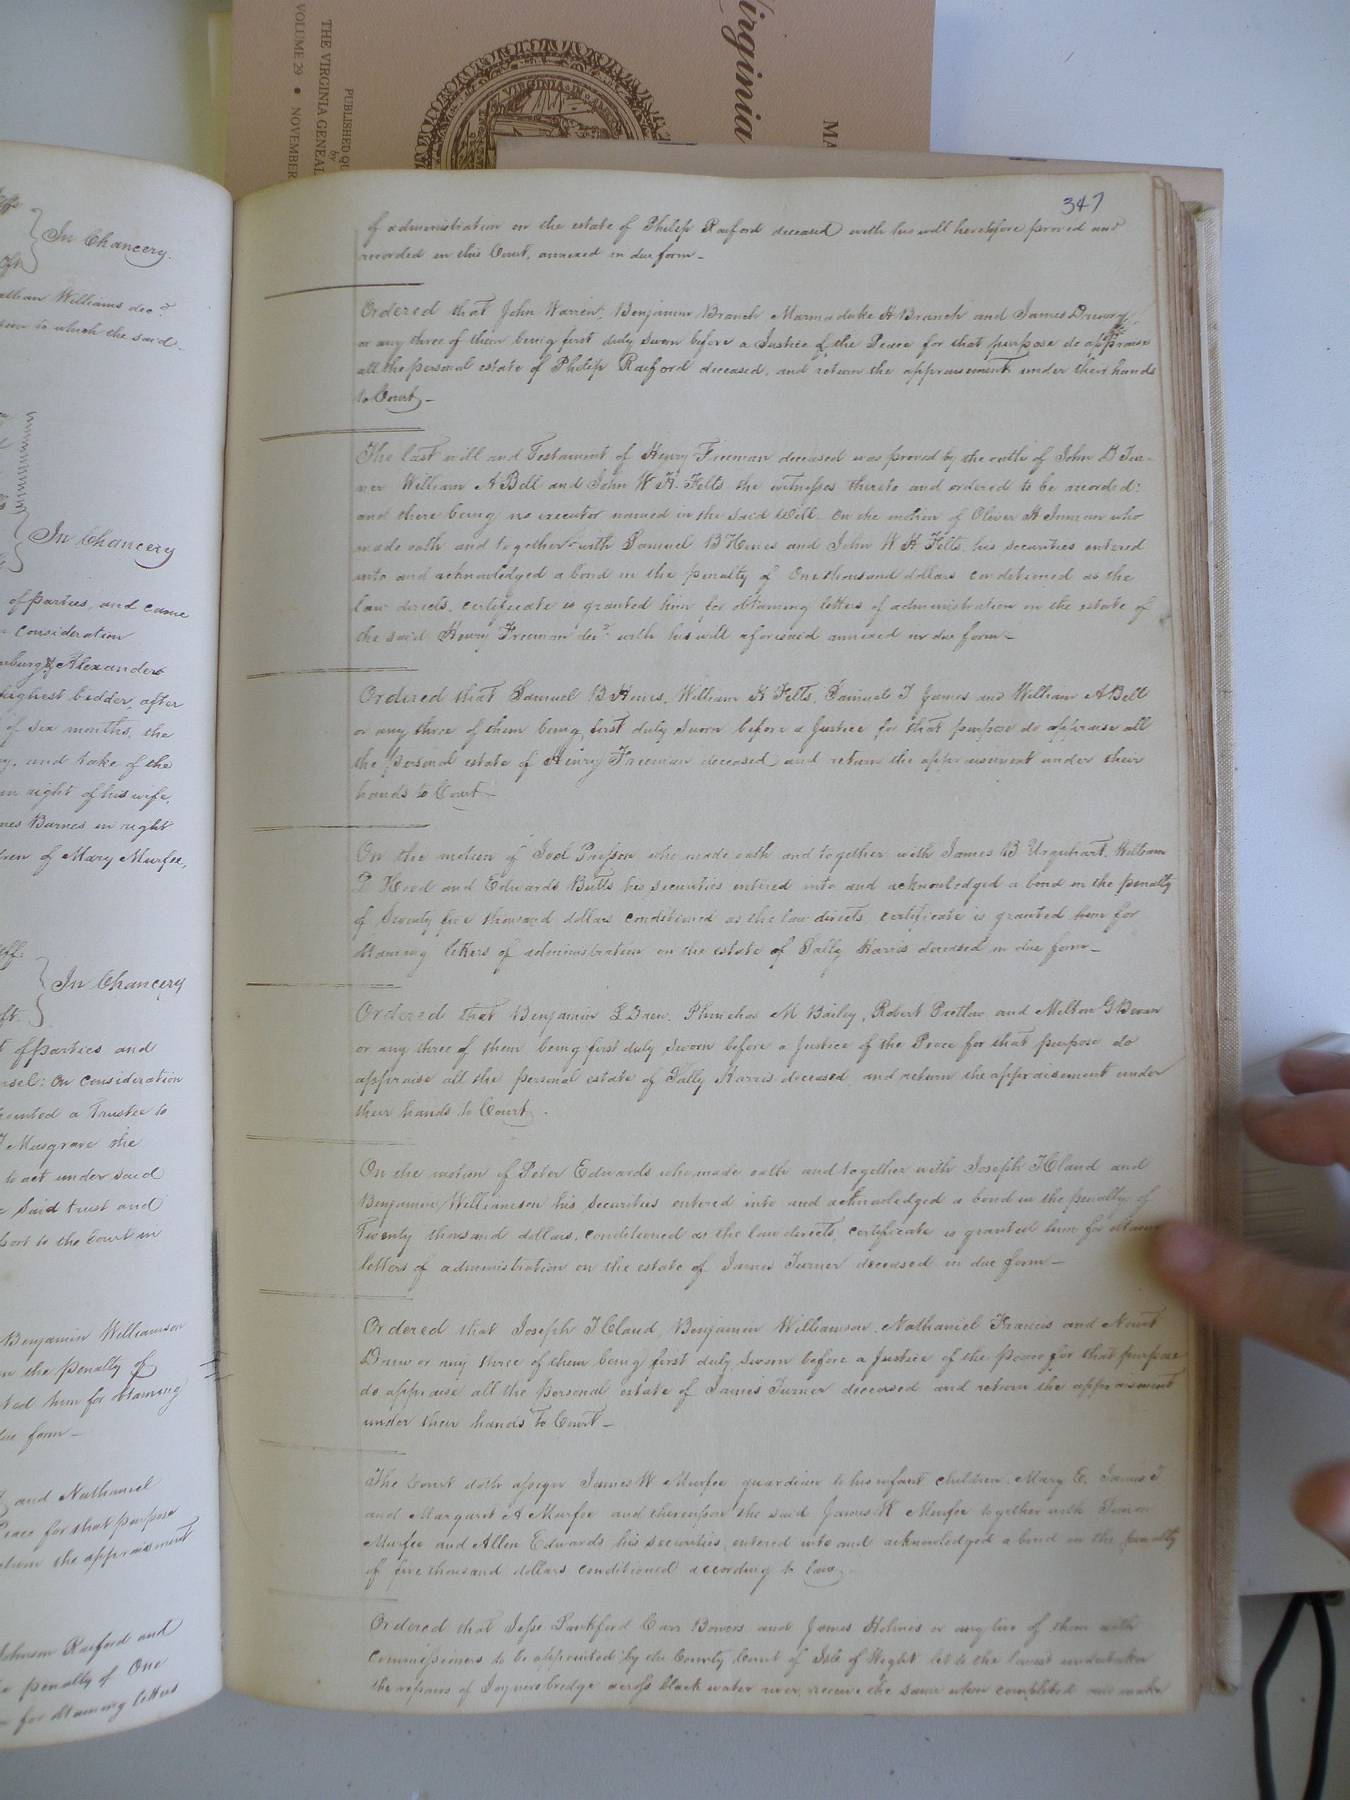 Virginia
MA
PUBLISHED QU
by
THE VIRGINIA GENEAL
VOLUME 29 • NOVEMBER
VIRGINIA
In Chancery.
Williams dec.d
to which the said
In Chancery
of parties, and came
consideration
Alexander
highest bidder, after
of six months, the
and take of the
in right of his wife,
Barnes in right
of Mary Murfee,
In Chancery
of parties and
On consideration
a Trustee to
Musgrave the
to act under said
said trust and
to the Court in
Benjamin Williamson
in the penalty of
him for obtaining
form
and Nathaniel
Peace for that purpose
the appraisment
Johnson Raiford and
penalty of One
for obtaining letters
347
of administration on the estate of Philip Raiford deceased with his will heretofore proved and
recorded in this Court, annexed in due form
Ordered that John Warren, Benjamin Branch Marmaduke H Branch and James Drewry,
or any three of them being first duly sworn before a Justice of the Peace for that purpose do appraise
all the personal estate of Philip Raiford deceased, and return the appraisement under their hands
to Court
The last will and Testament of Henry Freeman deceased was proved by the oaths of John D Tur-
ner William A Bell and John W H. Felts the witnesses thereto and ordered to be recorded:
and there being no executor named in the said Will. On the motion of Oliver H Inman who
made oath and together with Samuel B Hines and John W H Felts, his securities entered
into and acknowledged a bond in the penalty of One thousand dollars conditioned as the
law directs, certificate is granted him for obtaining letters of administration on the estate of
the said Henry Freeman dec.d with his will aforesaid annexed in due form
Ordered that Samuel B Hines, William H Felts, Samuel T James and William A Bell
or any three of them being first duly sworn before a Justice for that purpose do appraise all
the personal estate of Henry Freeman deceased and return the appraisement under their
hands to Court
On the motion of Joel Presson who made oath and together with James B Urquhart, William
D Hood and Edwards Butts his securities entered into and acknowledged a bond in the penalty
of Seventy five thousand dollars conditioned as the law directs, certificate is granted him for
obtaining letters of administration on the estate of Sally Harris deceased in due form
Ordered that Benjamin L Drew, Phinehas M Bailey, Robert Pretlow and Melton G Bevan
or any three of them being first duly sworn before a Justice of the Peace for that purpose do
appraise all the personal estate of Sally Harris deceased, and return the appraisement under
their hands to Court.
On the motion of Peter Edwards who made oath and together with Joseph T Claud and
Benjamin Williamson his securities entered into and acknowledged a bond in the penalty of
Twenty thousand dollars, conditioned as the law directs, certificate is granted him for
letters of administration on the estate of James Turner deceased in due form
Ordered that Joseph T Claud, Benjamin Williamson, Nathaniel Francis and Newit
Drew or any three of them being first duly sworn before a Justice of the peace for that purpose
do appraise all the personal estate of James Turner deceased and return the appraisement
under their hands to Court
The Court doth assign James W Murfee guardian to his infant children, Mary E. James T
and Margaret A Murfee and thereupon the said James W Murfee together with Simon
Murfee and Allen Edwards his securities entered into and acknowledged a bond in the penalty
of five thousand dollars conditioned according to law
Ordered that Jesse Lankford Carr Bowers and James Holmes or any two of them with
Commissioners to be appointed by the County Court of Isle of Wight let to the lowest undertaker
the repairs of Joyners bridge across black water river, receive the same when completed and make